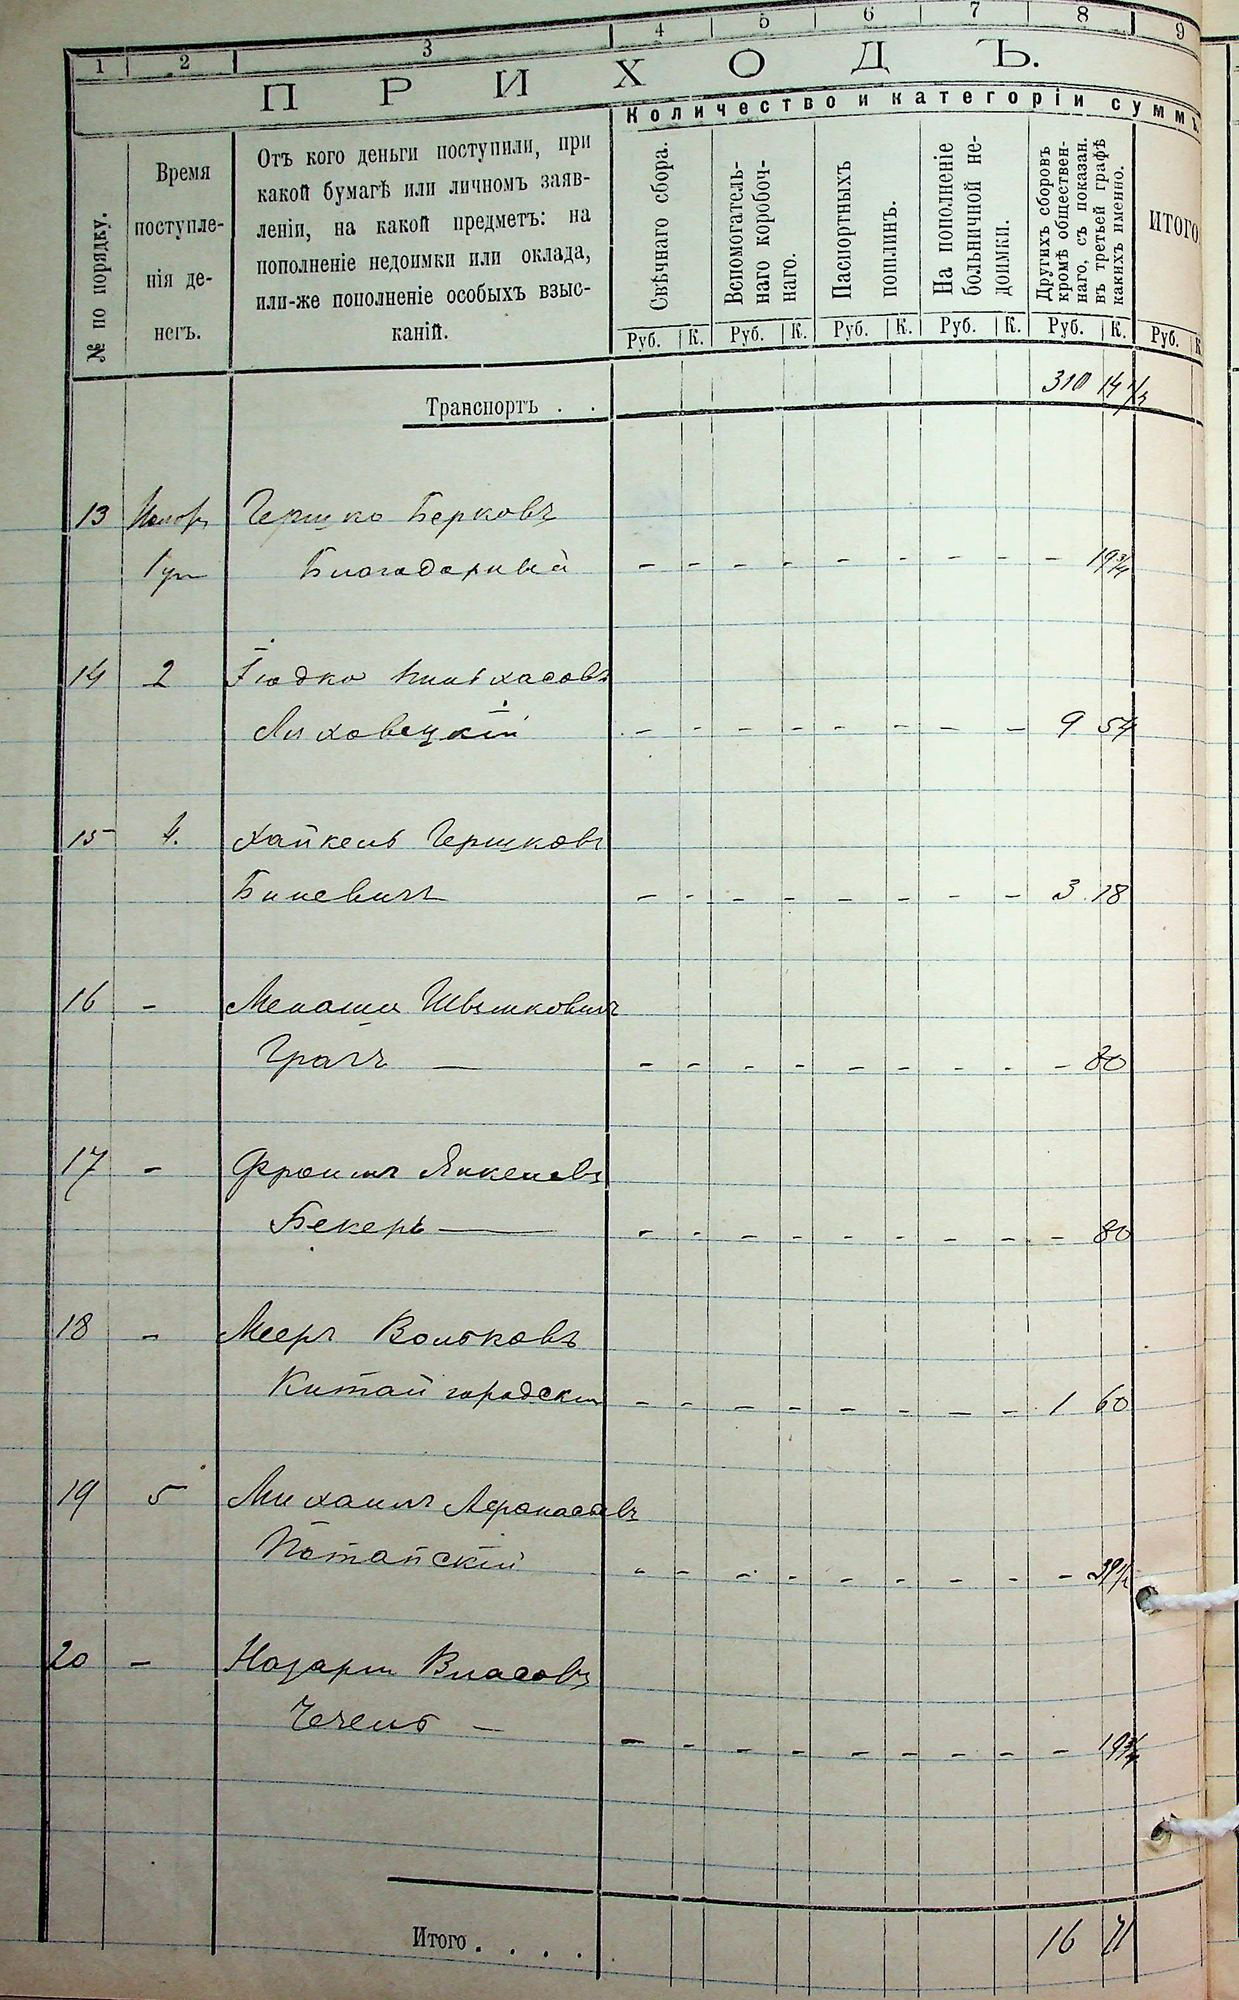 1 2 3 4 5 6 7 8 9
ПРИХОДЪ.
Количество и категоріи суммъ.
№ по порядку.
Время
поступле-
нія де-
негъ.
Отъ кого деньги поступили, при
какой бумагѣ или личномъ заяв-
леніи, на какой предметъ: на
пополненіе недоимки или оклада,
или-же пополненіе особыхъ взыс-
каній.
Свѣчнаго сбора.
Вспомогатель-
наго коробоч-
наго.
Паспортныхъ
пошлинъ.
На пополненіе
больничной не-
доимки.
Другихъ сборовъ
кромѣ обществен-
наго, съ показан.
въ третьей графѣ
какихъ именно.
ИТОГО
Руб. К. Руб. К. Руб. К. Руб. К. Руб. К. Руб. К
Транспортъ . . 310 14 1/3
13 Гершко Берковъ
1 Благодарный – – – – – – – – – 19 3/4
14 2 Іюдко Пинхасовъ
Ляховецкій – – – – – – – – 9 54
15 4. Хайкель Гершковъ
Билевичъ – – – – – – – – 3 18
16 – Менаши
Грачъ — – – – – – – – – – 80
17 – Фроимъ Янкелевъ
Бекеръ — – – – – – – – – – 80
18 – Мееръ Вольковъ
Китайгородскій – – – – – – – – 1 60
19 5 Михаилъ Афанасьевъ
Потапскій – – – – – – – – – 39 1/2
20 – Назарій Власовъ
Чечель – – – – – – – – – – 19 3/4
Итого . . . . 16 71